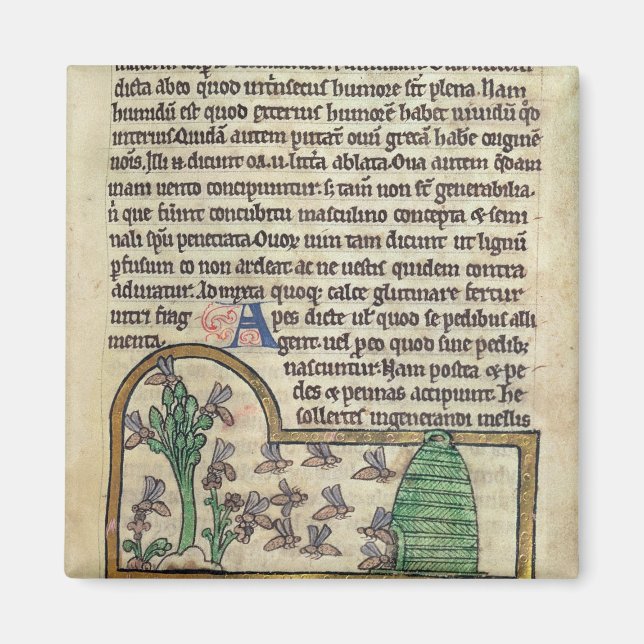 dicta ab eo quod intrinsecus humore sit plena. Nam
humidū est quod exterius humorē habet uiuidū qd̄
interius. Quidā autem putāt ouū grecā habē originē
nois. Illi n̄ dicunt oa. u. littā ablata. Oua autem q̄dam
inani uento concipiuntur. s; tam̄ non st̄ generabilia.
n̄ que fūint concubitu masculino concepta & semi
nali spū penetrata. Quoꝝ uim tam dicunt ut lignū
pfusum eo non ardeat. ac ne uestis quidem contra
aduratur. Admixta quoq; calce glutinare fertur
uitri frag
menta.
Apes dicte ul' quod se pedibus alli
gent. uel peo quod sine pedib;
nascuntur. Nam postea & pe
des & pennas accipiunt. He
sollertes in generandi mellis